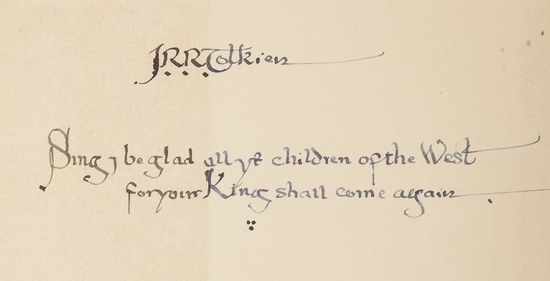 J.R.R. Tolkien
Sing ⁊ be glad all ye children of the West
for your King shall come again